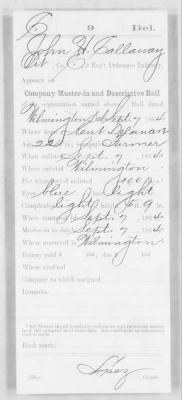 C 9 Del.
John H. Callaway
Pvt, Co. 9 Reg't Delaware Infantry.
Appears on
Company Muster-in and Descriptive Roll
of the organization named above. Roll dated
Wilmington Del Sept 7, 1864
Where born Kent Delaware
Age 22 y'rs; occupation Farmer
When enlisted Sept. 7, 1864
Where enlisted Wilmington
For what period enlisted years
Eyes blue; hair light
Complexion light; height ft. 9 in.
When mustered in Sept. 7, 1864
Muster-in to date Sept. 7, 1864
Where mustered in Wilmington
Bounty paid $ 100; due $ 100
Where credited
Company to which assigned
Remarks:
Book mark:
Copyist.